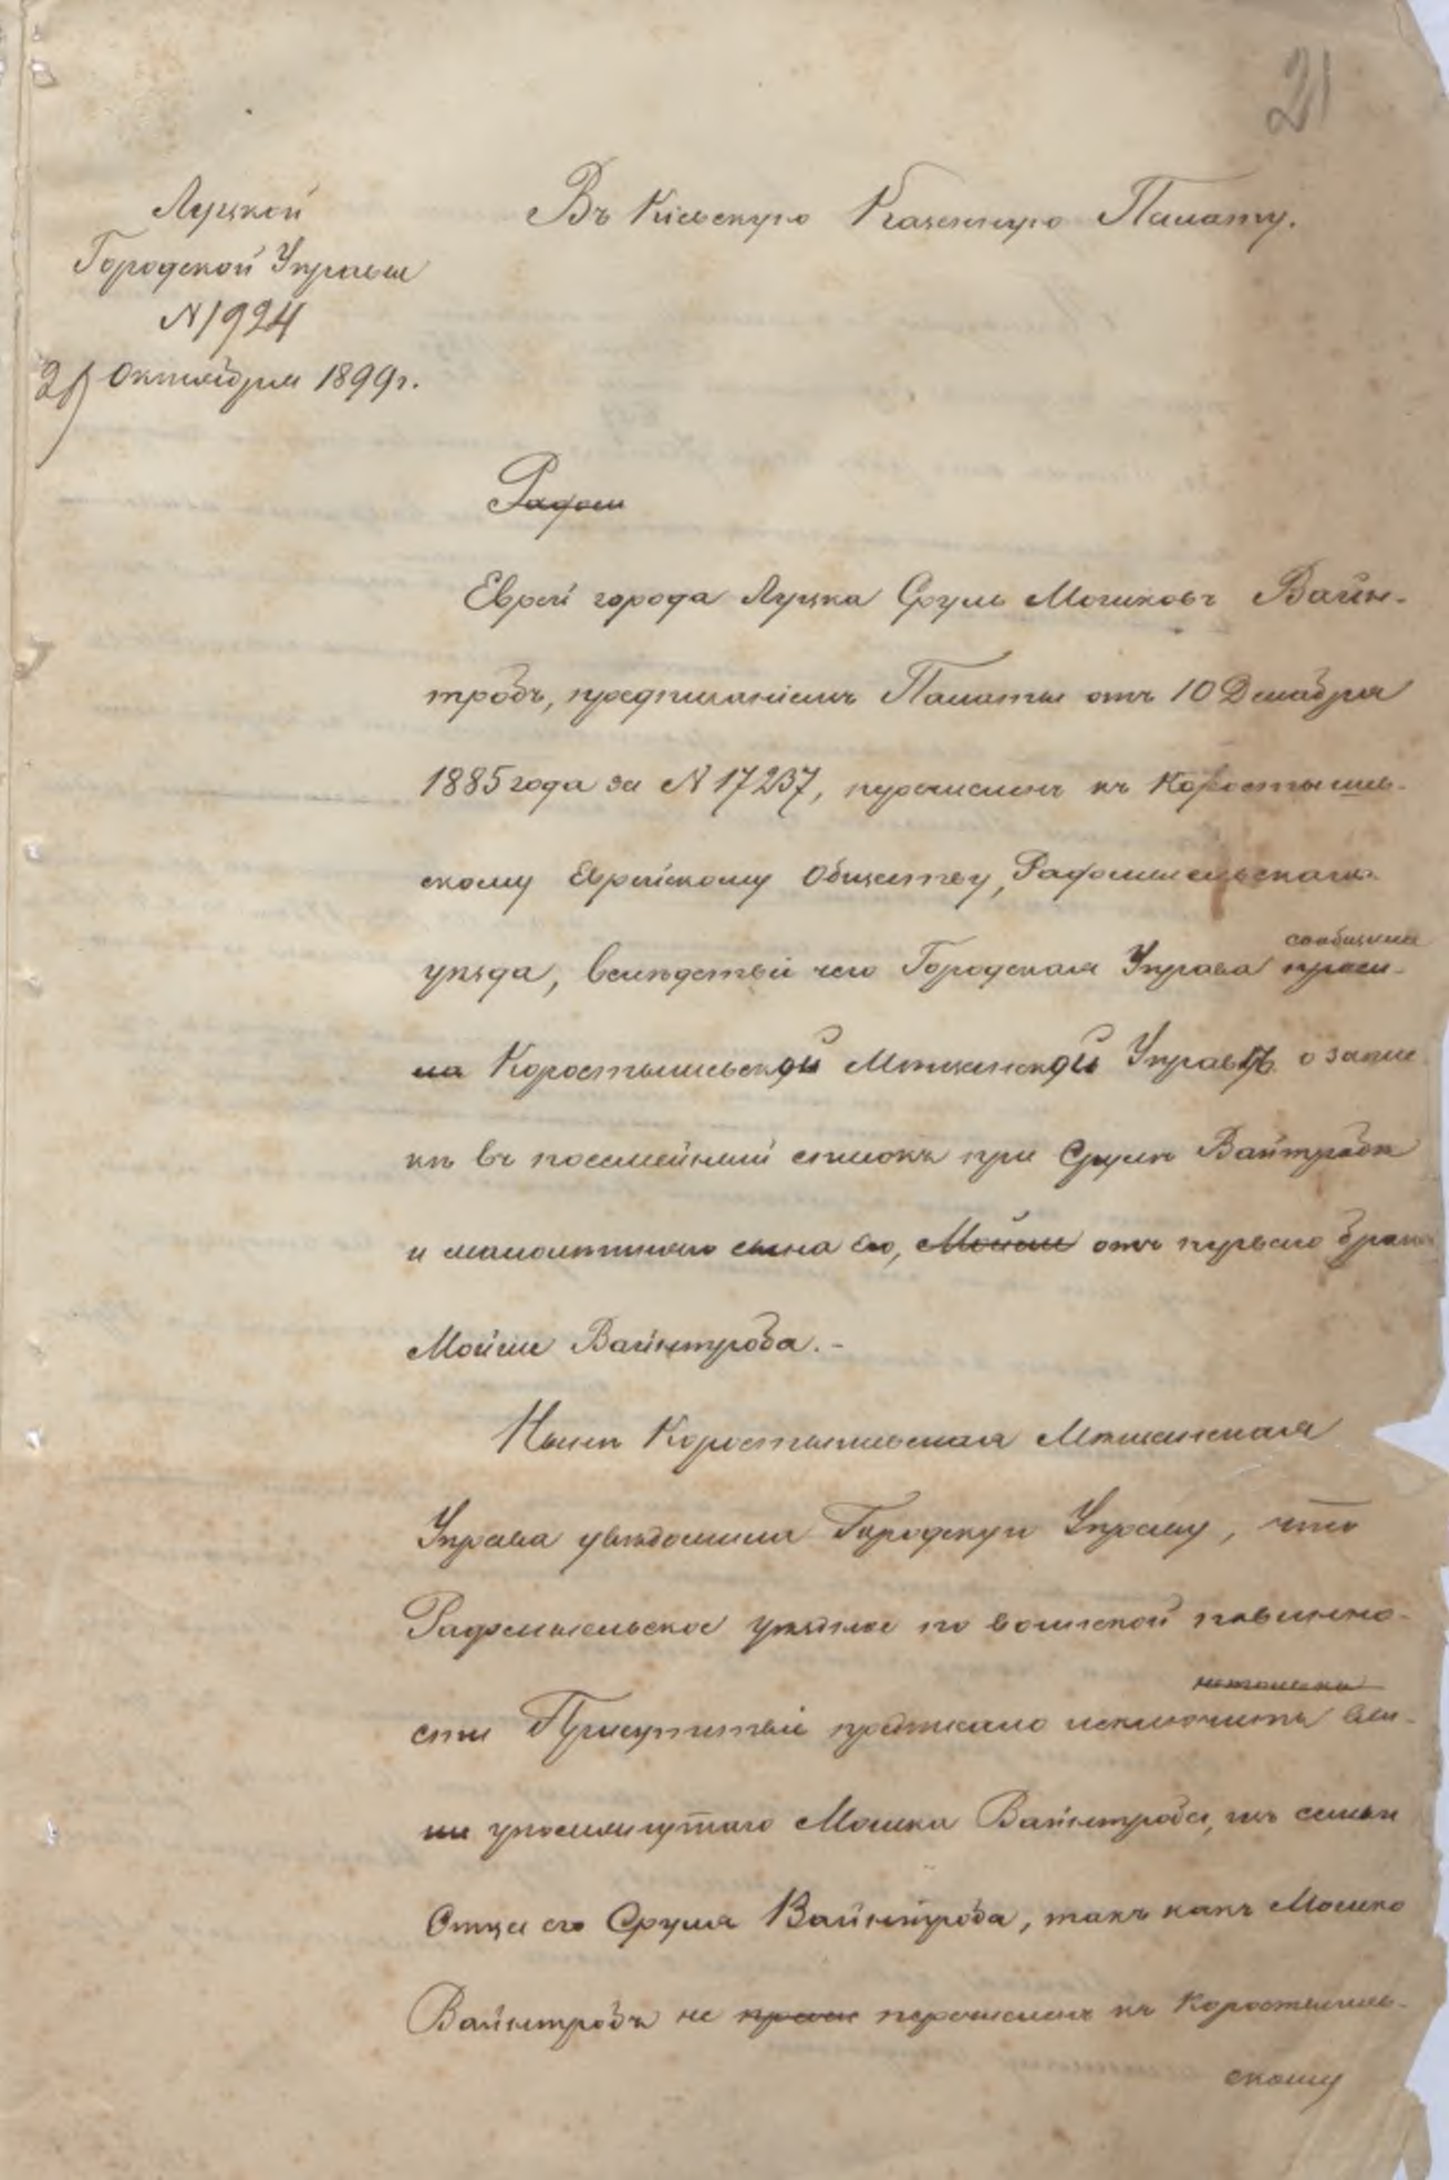 21
Луцкой
Городской Управы
№ 1924
Октября 1899 г.
Въ Кіевскую Казенную Палату.
Радом
Еврей города Луцка Сруль Мошковъ Вайн-
тробъ, предписаніемъ Палаты отъ 10 Декабря
1885 года за № 17237, перечисленъ къ Коростышев-
скому Еврейскому Обществу, Радомысльскаго
уѣзда, вслѣдствіе чего Городская Управа сообщила
проси-
ла Коростышевской Мѣщанской Управѣ о запис-
кѣ въ посемейный списокъ при Срулѣ Вайтробѣ
и малолѣтняго сына его, Мойше отъ перваго брака
Мойше Вайнтроба. -
Нынѣ Коростышевская Мѣщанская
Управа увѣдомила Городскую Управу, что
Радомысльское уѣздное по воинской повинно-
сти Присутствіе предписало исключить
упомянутаго Мошка Вайнтроба, изъ семьи
Отца его Сруля Вайнтроба, такъ какъ Мошко
Вайнтробъ не перечисленъ къ Коростышев-
скому